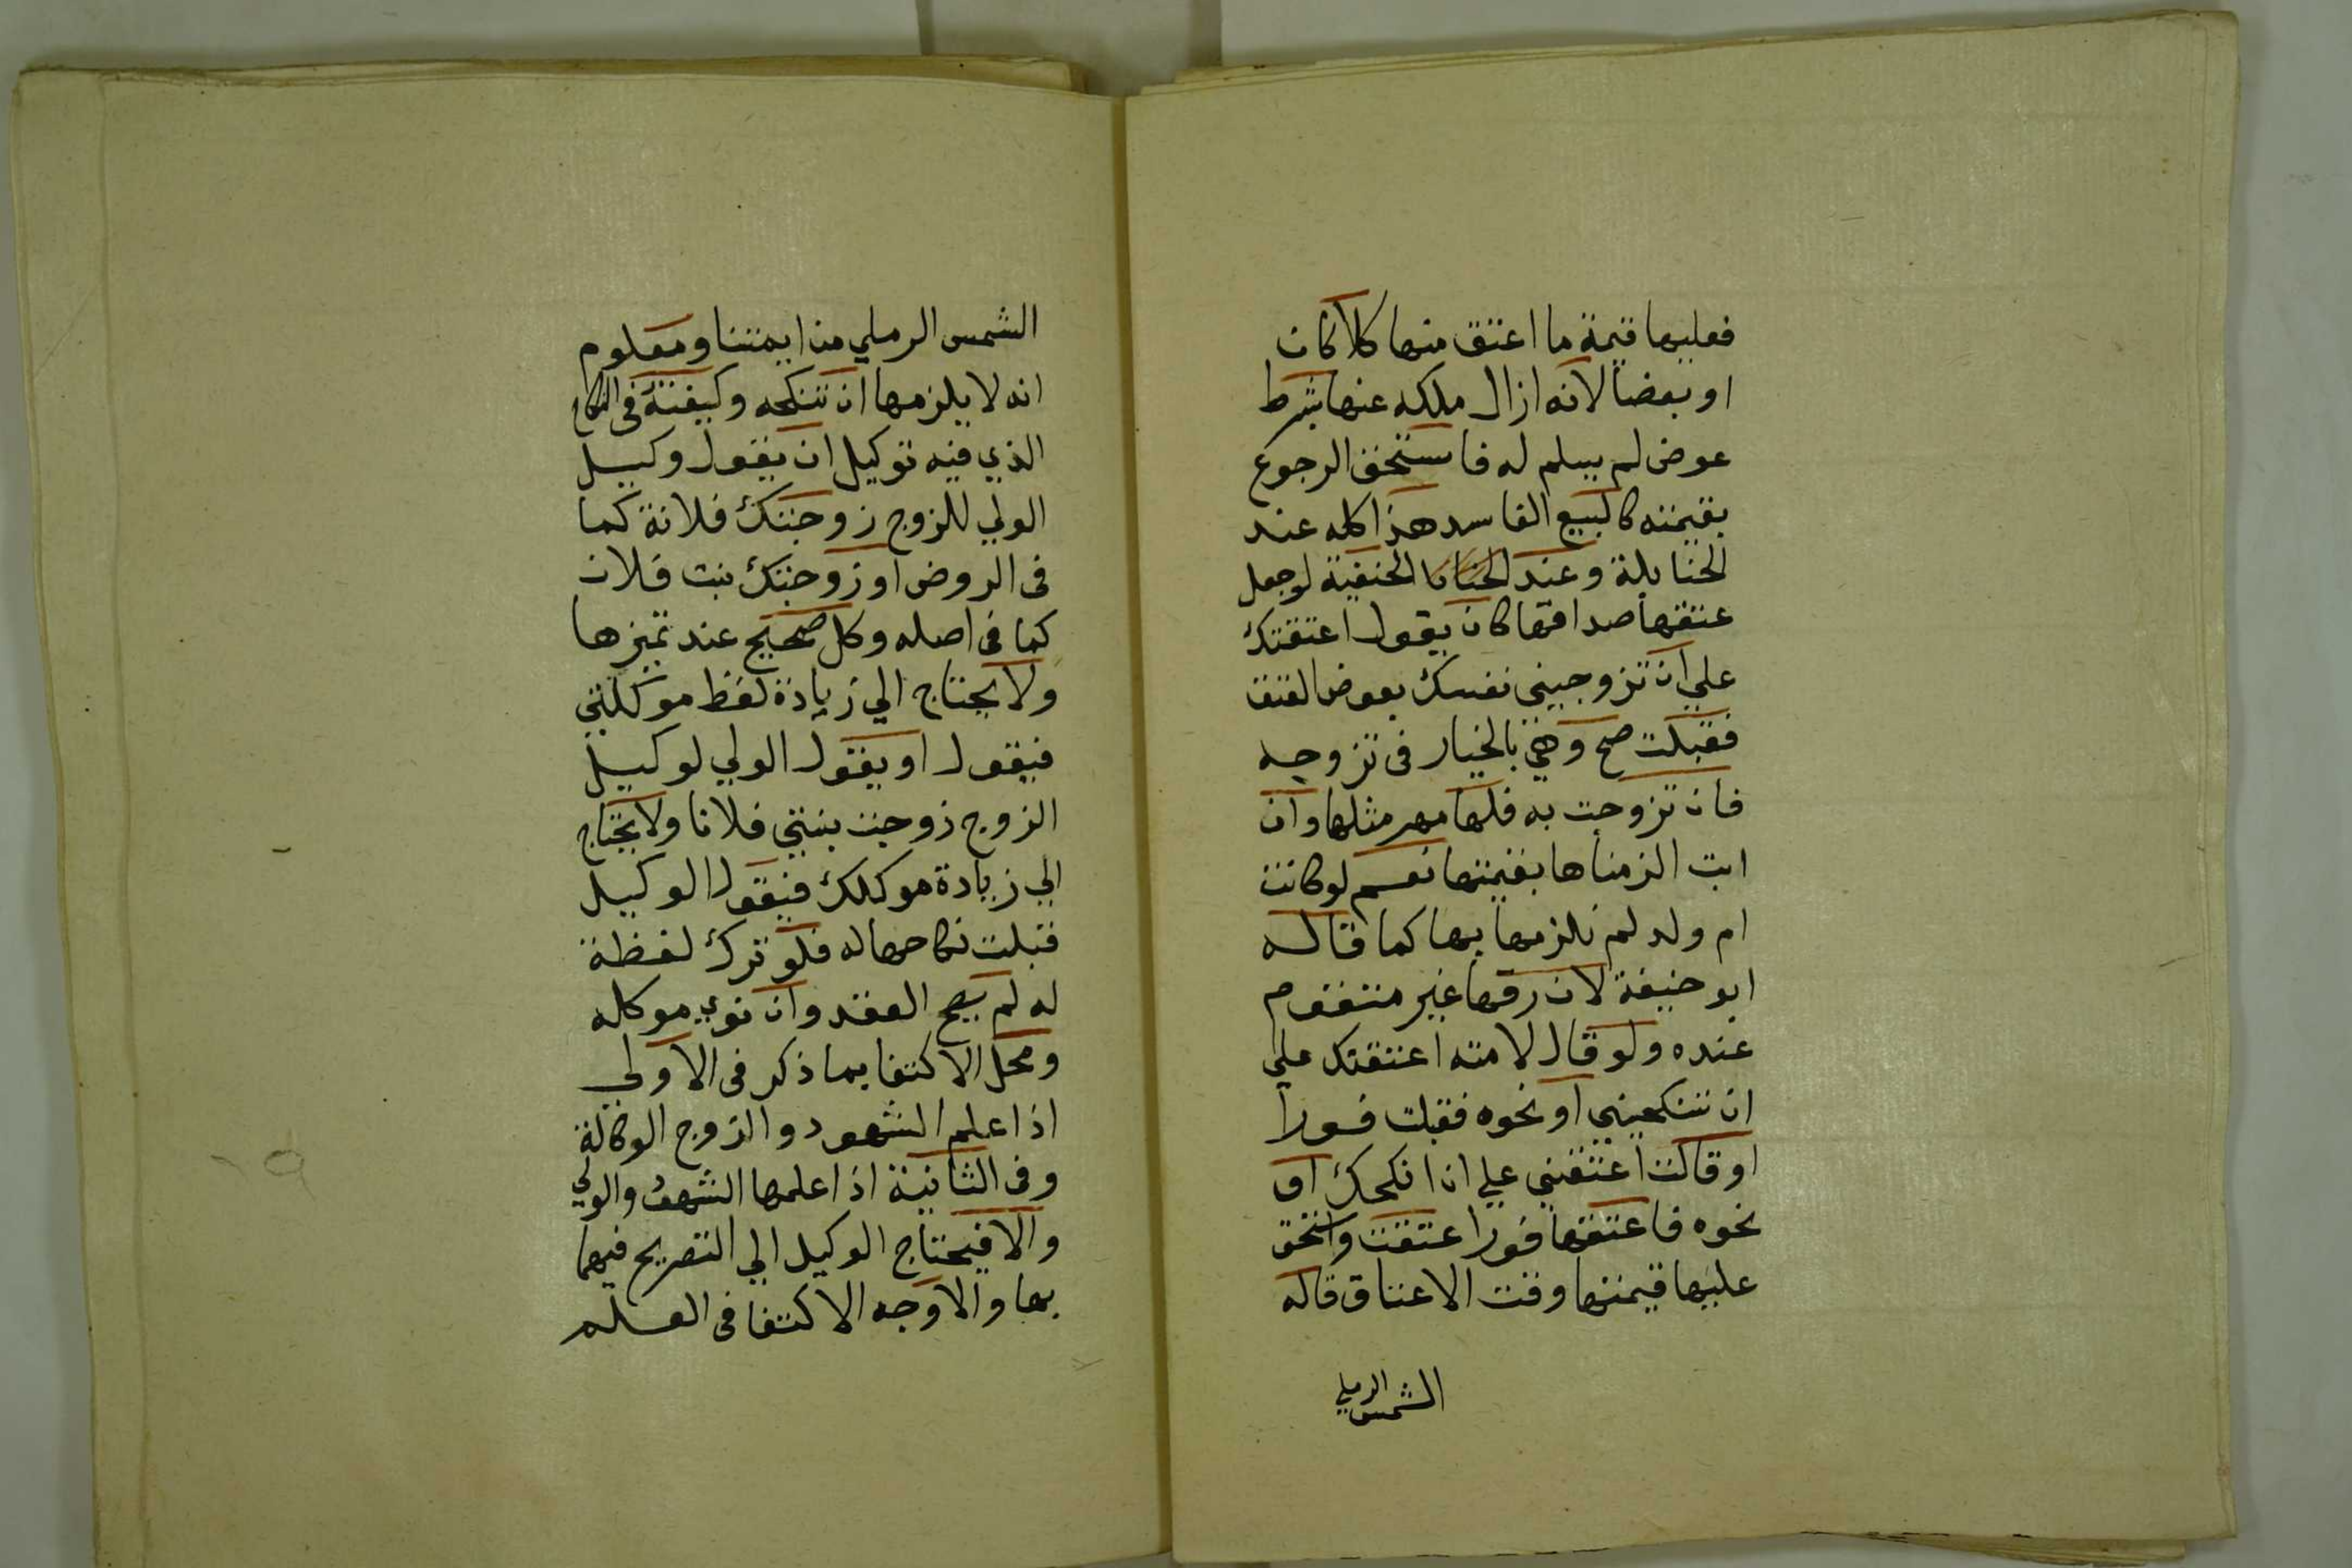 فعليها قيمة ما اعتق منها كلا كان
او بعضا لانه ازال ملكه عنها بشرط
عوض لم يسلم له فاستحق الرجوع
بقيمته كالبيع الفاسد هذا كله عند
الحنابلة وعند الحنفية لو جعل
عتقها صداقها كان يقول اعتقتك
علي ان تزوجيني نفسك بعوض العتق
فقبلت صح وهي بالخيار في تزوجه
فان تزوجت به فلها مهر مثلها وان
ابت الزمناها بقيمتها نعم لو كانت
ام ولد لم نلزمها بها كما قاله
ابو حنيفة لان رقها غير متقوم
عنده ولو قال لامته اعتقتك علي
ان تنكحيني او نحوه فقبلت فورا
او قالت اعتقني علي ان انكحك او
نحوه فاعتقها فورا عتقت واستحق
عليها قيمتها وقت الاعتاق قاله
الشمس الرملي
الشمس الرملي من ايمتنا ومعلوم
انه لا يلزمها ان تنكحه وكيفيته في النكاح
الذي فيه توكيل ان يقول وكيل
الولي للزوج زوجتك فلانة كما
في الروض او زوجتك بنت فلان
كما في اصله وكل صحيح عند تميزها
ولا يحتاج الي زيادة لفظ موكلتي
فيقول او يقول الولي لوكيل
الزوج زوجت بنتي فلانا ولا يحتاج
الي زيادة موكلك فيقول الوكيل
قبلت نكاحها له فلو ترك لفظة
له لم يصح العقد وان نوي موكله
ومحل الاكتفا بما ذكر في الاولي
اذا علم الشهود والزوج الوكالة
وفي الثانية اذا علمها الشهود والولي
والا فيحتاج الوكيل الي التصريح فيهما
بها والاوجه الاكتفا في العلم